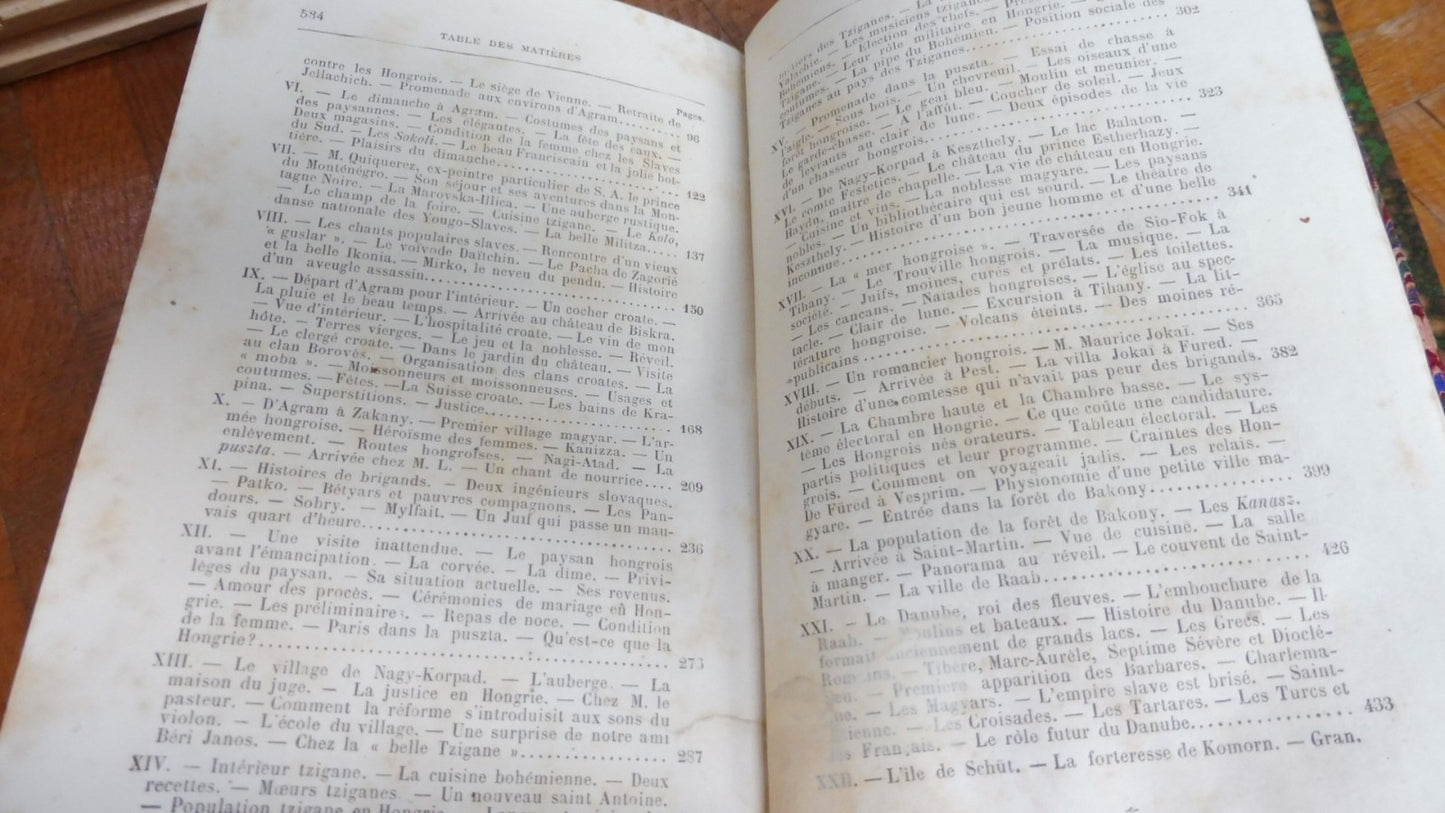 584
TABLE DES MATIÈRES
Pages.
contre les Hongrois. — Le siège de Vienne. — Retraite de
Jellachich. — Promenade aux environs d'Agram.......... 96
VI. — Le dimanche à Agram. — Costumes des paysans et
des paysannes. — Les élégantes. — La fête des eaux. —
Deux magasins. — Condition de la femme chez les Slaves
du Sud. — Les Sokoli. — Le beau Franciscain et la jolie bot-
tière. — Plaisirs du dimanche.......... 122
VII. — M. Quiquerez, ex-peintre particulier de S. A. le prince
du Monténégro. — Son séjour et ses aventures dans la Mon-
tagne Noire. — La Marovska-Illica. — Une auberge rustique.
— Le champ de la foire. — Cuisine tzigane. — Le Kolo,
danse nationale des Yougo-Slaves. — La belle Militza..... 137
VIII. — Les chants populaires slaves. — Rencontre d'un vieux
« guslar ». — Le voivode Daïtchin. — Le Pacha de Zagorié
et la belle Ikonia. — Mirko, le neveu du pendu. — Histoire
d'un aveugle assassin.......... 150
IX. — Départ d'Agram pour l'intérieur. — Un cocher croate. —
La pluie et le beau temps. — Arrivée au château de Biskra.
— Vue d'intérieur. — L'hospitalité croate. — Le vin de mon
hôte. — Terres vierges. — Le jeu et la noblesse. — Réveil.
— Le clergé croate. — Dans le jardin du château. — Visite
au clan Borovès. — Organisation des clans croates. — La
« moba ». — Moissonneurs et moissonneuses. — Usages et
coutumes. — Fêtes. — La Suisse croate. — Les bains de Kra-
pina. — Superstitions. — Justice.......... 168
X. — D'Agram à Zakany. — Premier village magyar. — L'ar-
mée hongroise. — Héroïsme des femmes. — Kanizza. — Un
enlèvement. — Routes hongroises. — Nagi-Atad. — La
puszta. — Arrivée chez M. L. — Un chant de nourrice.... 209
XI. — Histoires de brigands. — Deux ingénieurs slovaques.
— Patko. — Bétyars et pauvres compagnons. — Les Pan-
dours. — Sobry. — Mylfait. — Un Juif qui passe un mau-
vais quart d'heure.......... 236
XII. — Une visite inattendue. — Le paysan hongrois
avant l'émancipation. — La corvée. — La dime. — Privi-
lèges du paysan. — Sa situation actuelle. — Ses revenus.
— Amour des procès. — Cérémonies de mariage en Hon-
grie. — Les préliminaires. — Repas de noce. — Condition
de la femme. — Paris dans la puszta. — Qu'est-ce que la
Hongrie?.......... 273
XIII. — Le village de Nagy-Korpad. — L'auberge. — La
maison du juge. — La justice en Hongrie. — Chez M. le
pasteur. — Comment la réforme s'introduisit aux sons du
violon. — L'école du village. — Une surprise de notre ami
Béri Janos. — Chez la « belle Tzigane ».......... 287
XIV. — Intérieur tzigane. — La cuisine bohémienne. — Deux
recettes. — Mœurs tziganes. — Un nouveau saint Antoine.
— Population tzigane en Hongrie.
des Tziganes. — La
Valachie. — Les musiciens tziganes.
Bohémiens. — Élection des chefs.
costumes. — Leur rôle militaire en Hongrie. — Position sociale des
Tzigane. — La pipe du Bohémien.
Tziganes au pays des Tziganes.......... 302
XV. — Promenade dans la puszta. Essai de chasse à
l'aigle. — Sous bois. — Un chevreuil. — Les oiseaux d'une
forêt hongroise. — Le geai bleu. — Moulin et meunier. —
Le garde-chasse. — A l'affût. — Coucher de soleil. — Jeux
de levrauts au clair de lune. — Deux épisodes de la vie
d'un chasseur hongrois.......... 323
XVI. — De Nagy-Korpad à Keszthely. — Le lac Balaton. —
Le comte Festetics. — Le château du prince Estherhazy. —
Haydn, maître de chapelle. — La vie de château en Hongrie.
— Cuisine et vins. — La noblesse magyare. — Les paysans
nobles. — Un bibliothécaire qui est sourd. — Le théâtre de
Keszthely. — Histoire d'un bon jeune homme et d'une belle
inconnue.......... 341
XVII. — La « mer hongroise ». — Traversée de Sio-Fok à
Tihany. — Le Trouville hongrois. — La musique. — La
société. — Juifs, moines, curés et prélats. — Les toilettes.
— Les cancans. — Naïades hongroises. — L'église au spec-
tacle. — Clair de lune. — Excursion à Tihany. — La lit-
térature hongroise. — Volcans éteints. — Des moines ré-
publicains.......... 365
XVIII. — Un romancier hongrois. — M. Maurice Jokaï. — Ses
débuts. — Arrivée à Pest. — La villa Jokaï à Fured. —
Histoire d'une comtesse qui n'avait pas peur des brigands. 382
XIX. — La Chambre haute et la Chambre basse. — Le sys-
tème électoral en Hongrie. — Ce que coûte une candidature.
— Les Hongrois nés orateurs. — Tableau électoral. — Les
partis politiques et leur programme. — Craintes des Hon-
grois. — Comment on voyageait jadis. — Les relais. —
De Füred à Vesprim. — Physionomie d'une petite ville ma-
gyare. — Entrée dans la forêt de Bakony.......... 399
XX. — La population de la forêt de Bakony. — Les Kanasz.
— Arrivée à Saint-Martin. — Vue de cuisine. — La salle
à manger. — Panorama au réveil. — Le couvent de Saint-
Martin. — La ville de Raab.......... 426
XXI. — Le Danube, roi des fleuves. — L'embouchure de la
Raab. — Moulins et bateaux. — Histoire du Danube. — Il
formait anciennement de grands lacs. — Les Grecs. — Les
Romains. — Tibère, Marc-Aurèle, Septime Sévère et Dioclé-
— Première apparition des Barbares. — Charlema-
— Les Magyars. — L'empire slave est brisé. — Saint-
— Les Croisades. — Les Tartares. — Les Turcs et
les Français. — Le rôle futur du Danube.......... 433
XXII. — L'ile de Schüt. — La forteresse de Komorn. — Gran.